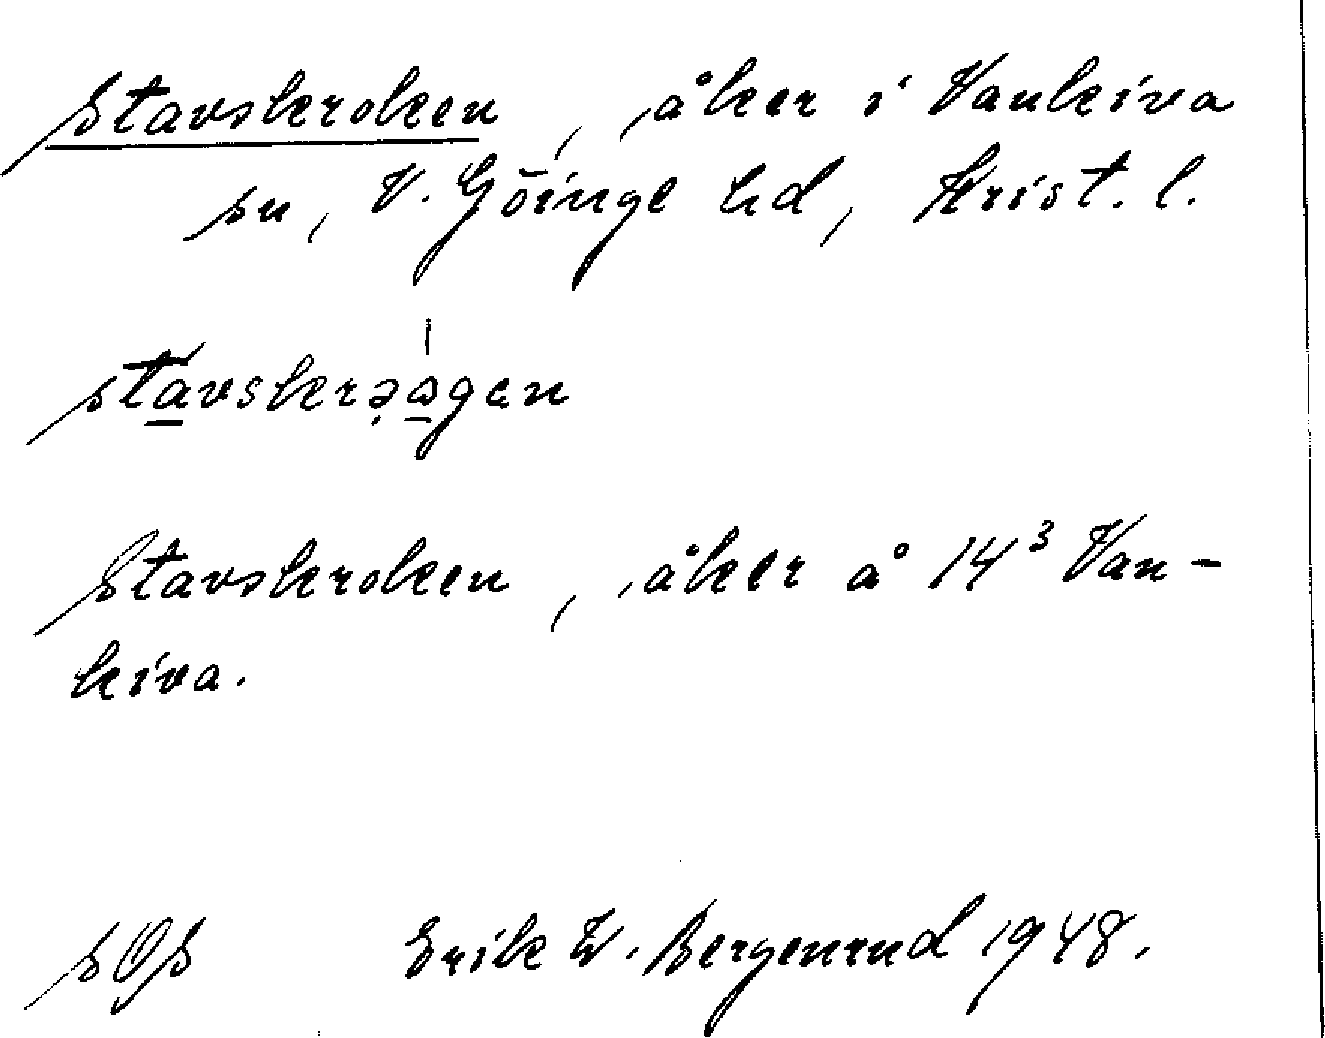 Stavskroken, åker i Vankiva
sn, V. Göinge hd, Krist. l.
Stavskroken, åker å 14³ Van-
kiva.
SOS Erik W. Bergenrud 1948.